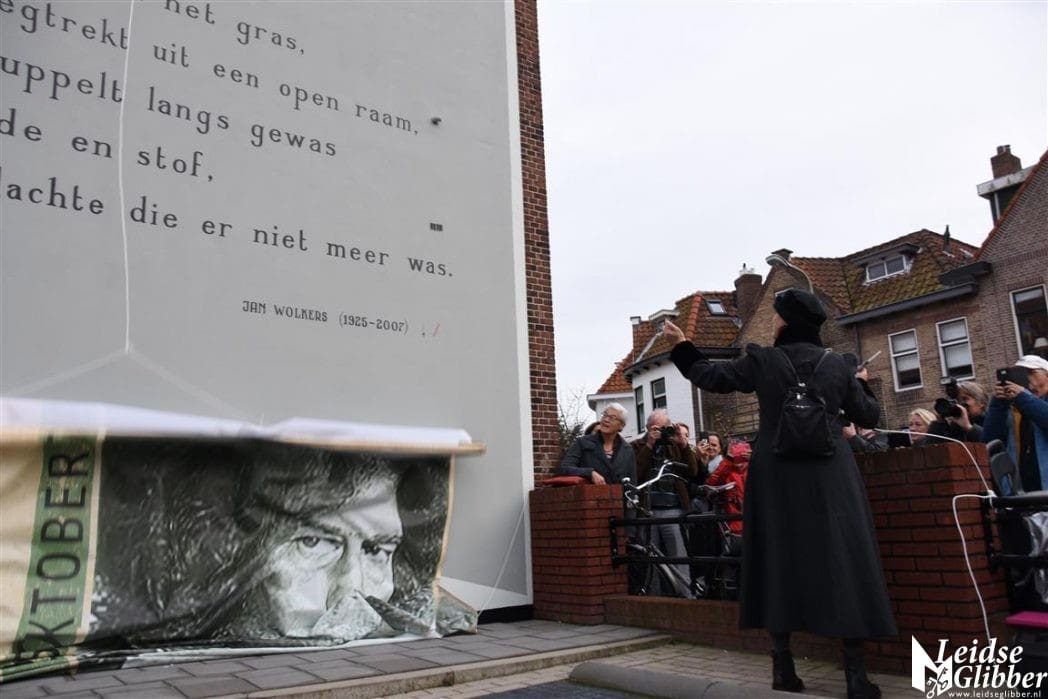 het gras,
egtrekt uit een open raam,
uppelt langs gewas
de en stof,
dachte die er niet meer was.
JAN WOLKERS (1925-2007)
OKTOBER
Leidse
Glibber
www.leidseglibber.nl